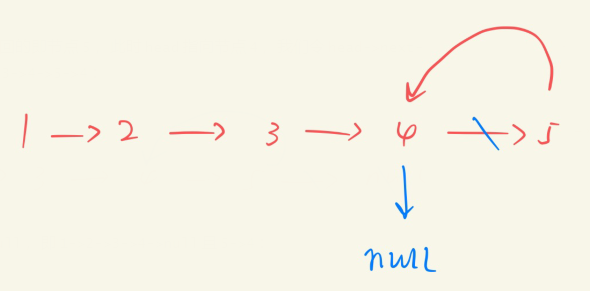 1 → 2 → 3 → 4 → 5
null